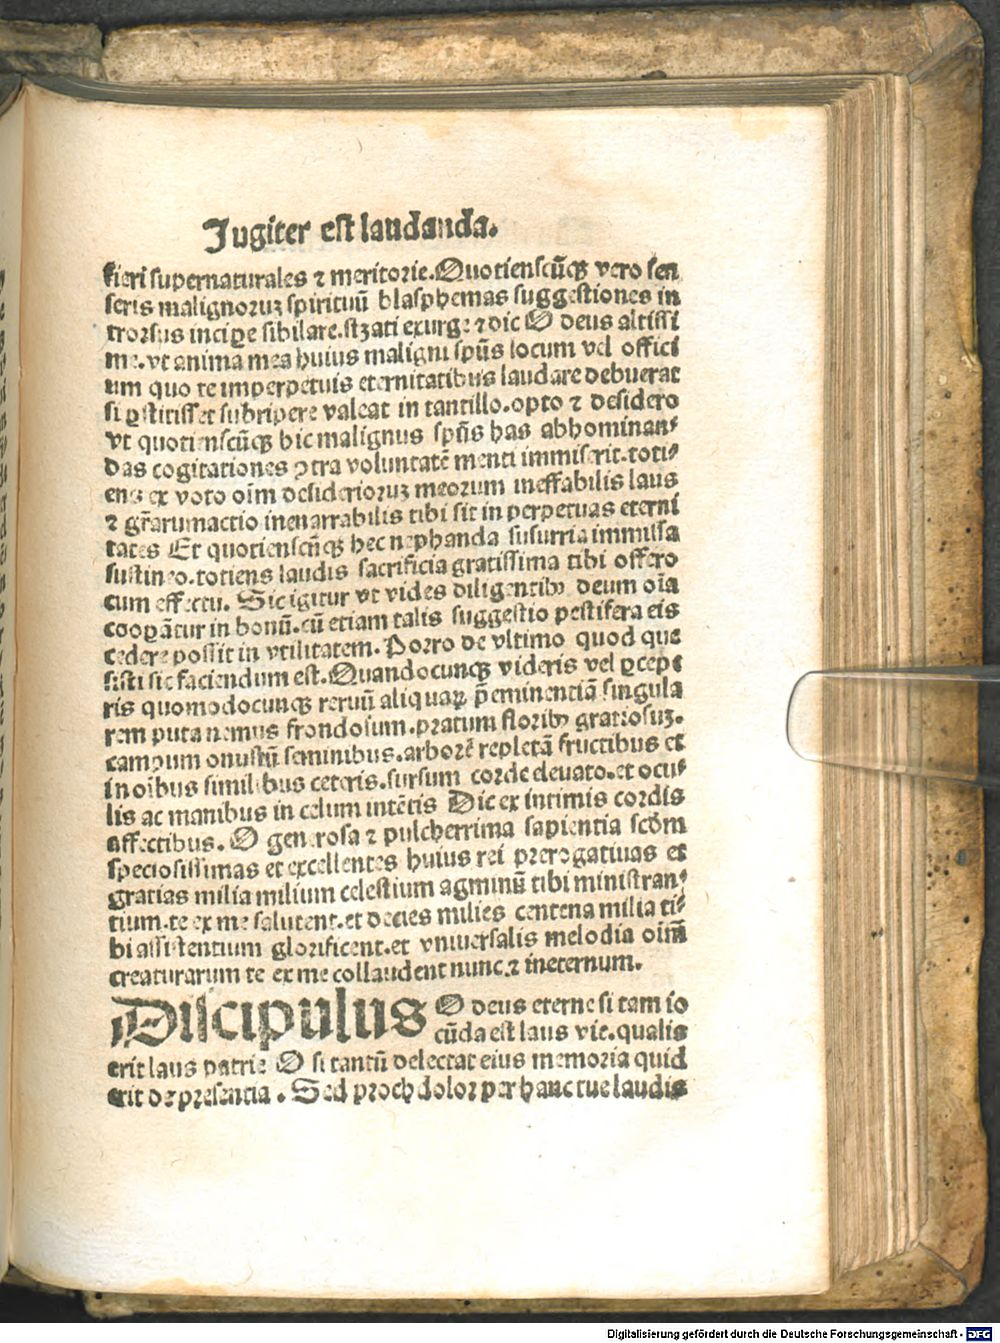 Jugiter est laudanda.
fieri supernaturales ⁊ meritorie. Quotienscūqꝫ vero sen
seris malignoruꝫ spirituū blasphemas suggestiones in
trorsus incipe sibilare. stꝫati exurge ⁊ dic O deus altissi
me. vt anima mea huius maligni spūs locum vel offici
um quo te imperpetuis eternitatibus laudare debuerat
si ꝑstitisset subripere valeat in tantillo. opto ⁊ desidero
vt quotienscūqꝫ hic malignus spūs has abhominan⸗
das cogitationes ꝯtra voluntatē menti immiserit. toti⸗
ens ex voto oīm desiderioruꝫ meorum ineffabilis laus
⁊ gr̄arumactio inenarrabilis tibi sit in perpetuas eterni
tates Et quotienscūqꝫ hec nephanda susurria immissa
sustineo. totiens laudis sacrificia gratissima tibi offero
cum effectu. Sic igitur vt vides diligentibꝰ deum oīa
cooꝑātur in bonū. cū etiam talis suggestio pestifera eis
cedere possit in vtilitatem. Porro de vltimo quod que
sisti sic faciendum est. Quandocunqꝫ videris vel ꝑcepe
ris quomodocunqꝫ reruū aliquaꝝ p̄eminentiā singula
rem puta nemus frondosum. pratum floribꝰ gratiosuꝫ.
campum onustū seminibus. arborē repletā fructibus et
in oībus similibus ceteris. sursum corde eleuato. et ocu⸗
lis ac manibus in celum intētis Dic ex intimis cordis
affectibus. O generosa ⁊ pulcherrima sapientia scd̄m
speciosissimas et excellentes huius rei prerogatiuas et
gratias milia milium celestium agminū tibi ministran⸗
tium. te ex me salutent. et decies milies centena milia ti⸗
bi assistentium glorificent. et vniuersalis melodia oīm̄
creaturarum te ex me collaudent nunc. ⁊ ineternum.
Discipulus O deus eterne si tam io
cūda est laus vie. qualis
erit laus patrie O si tantū delectat eius memoria quid
erit de presencia. Sed proch dolor per hanc tue laudis
Digitalisierung gefördert durch die Deutsche Forschungsgemeinschaft - DFG